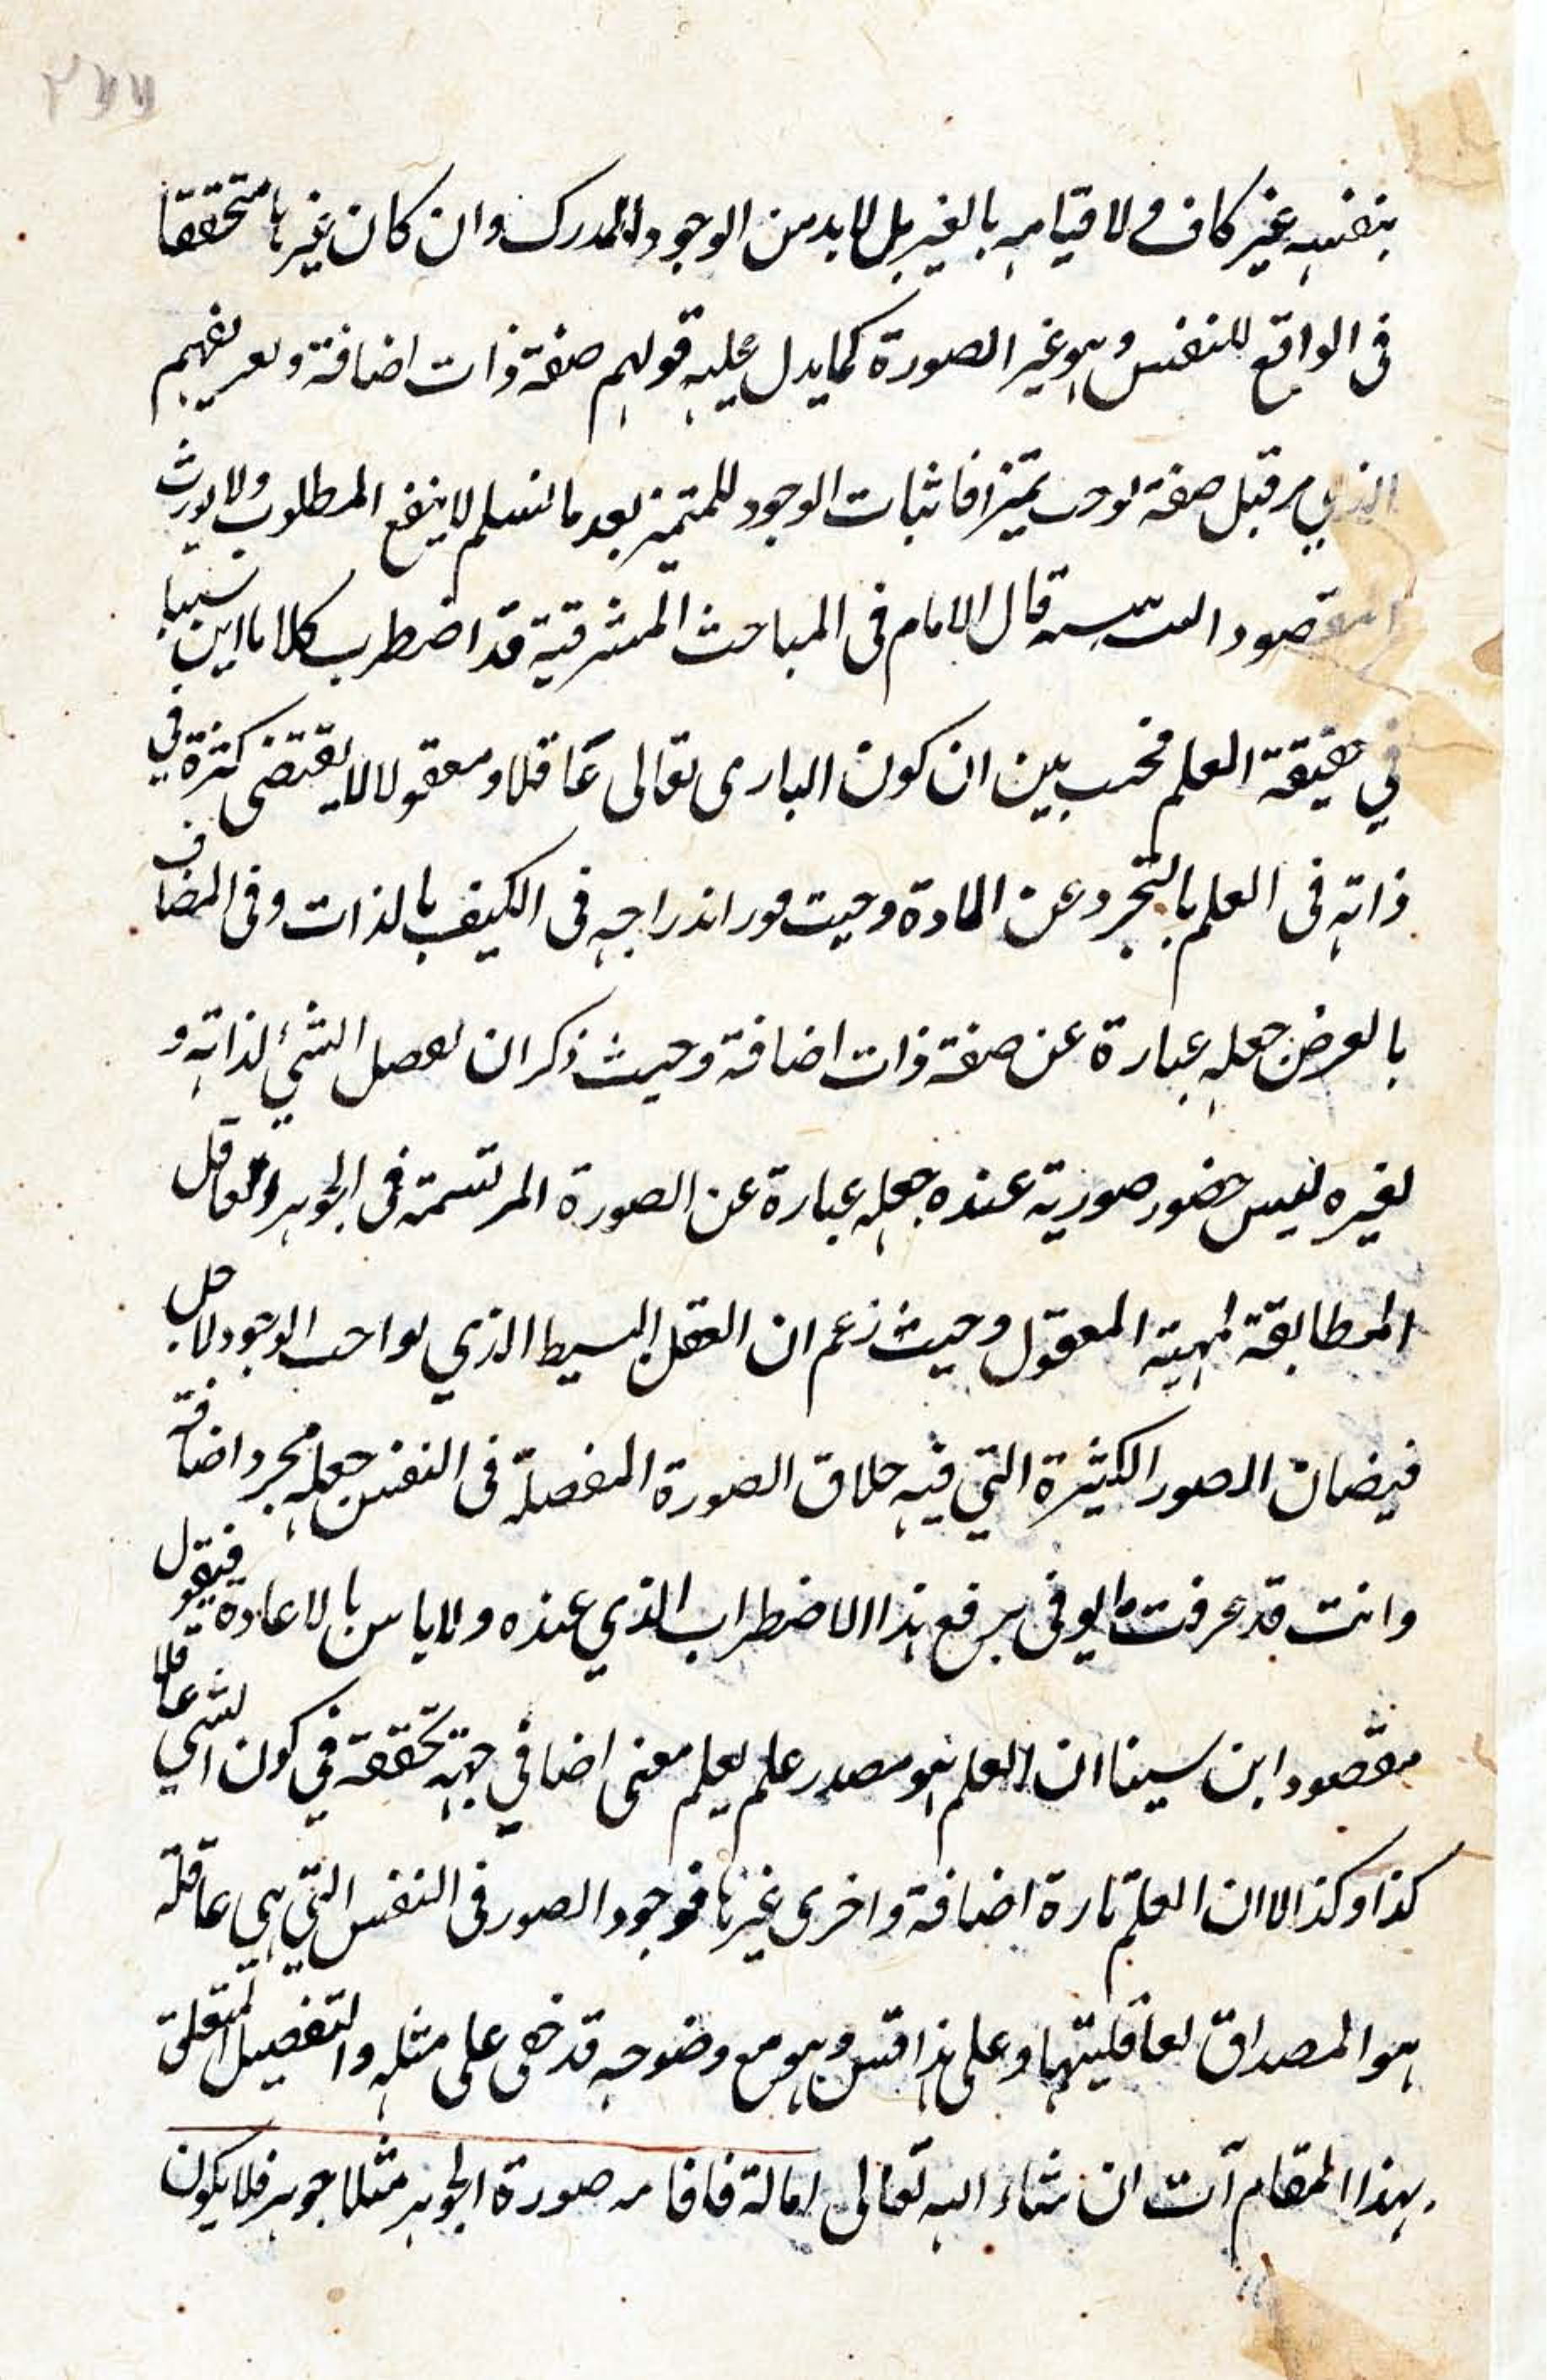 بنفسه غير كاف ولا قيامه بالغير بل لا بد من الوجود للمدرك وان كان غيرها متحققا
فى الواقع للنفس وهو غير الصورة كما يدل عليه قولهم صفة ذات اضافة وتعريفهم
الذي مر قبل صفة توجب تميزا فاثبات الوجود للمتميز بعد ما نسلم لا ينفع المطلوب ولا يورث
المقصود قال الامام فى المباحث المشرقية قد اضطرب كلام ابن سينا
في حقيقة العلم فحيث بين ان كون البارى تعالى عاقلا ومعقولا لا يقتضى كثرة في
ذاته فى العلم بالتجرد عن المادة وحيث اندراجه فى الكيف بالذات وفى المضاف
بالعرض جعله عبارة عن صفة ذات اضافة وحيث ذكر ان تعقل الشئ لذاته و
لغيره ليس حضور صورته عنده جعله عبارة عن الصورة المرتسمة فى الجوهر العاقل
المطابقة لمهية المعقول وحيث زعم ان العقل البسيط الذي لواجب الوجود لاجل
فيضان الصور الكثيرة التي فيه خلاق الصورة المفصلة فى النفس جعله مجرد اضافة
وانت قد عرفت ما يوفى برفع هذا الاضطراب الذي عنده ولا باس بالاعادة فنقول
مقصود ابن سينا ان العلم هو مصدر علم يعلم معنى اضافي جهة تحققه في كون الشي عاقلا
كذا وكذا لا ان العلم تارة اضافة واخرى غيرها فوجود الصور فى النفس التي هي عاقلة
هو المصداق لعاقليتها وعلى هذا قس وهو مع وضوحه قد خفى على مثله والتفصيل المتعلق
بهذا المقام آت ان شاء الله تعالى صورة الجوهر مثلا جوهر فلا يكون